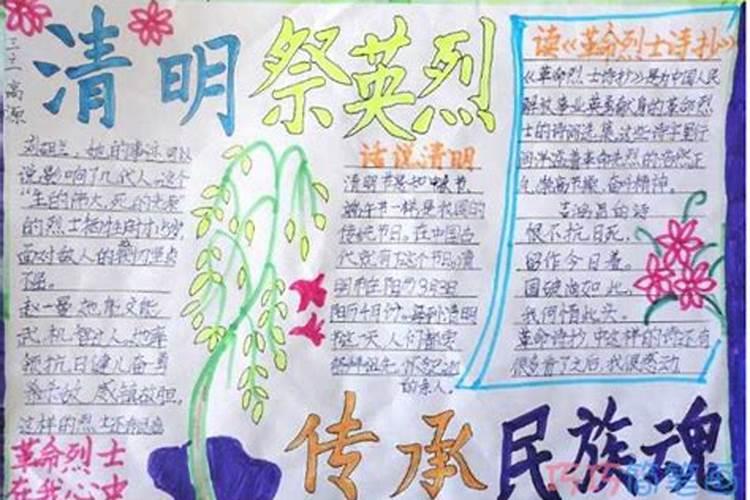 三二 高源
清明 祭英烈
刘胡兰,她的事迹可以
说影响了几代人,这个
“生的伟大,死的光荣”
的烈士牺牲时才15岁,
面对敌人的
不屈。
赵一曼她能文能
武,机智过人,她率
领抗日健儿奋勇
杀敌,威镇敌胆。
这样的烈士还有
革命烈士
在我心中
话说清明
清明节是和春节、
端午节一样是我国的
传统节日。在中国古
代就有了这个节日。清
明和在阳历
阳历4月份。每到清明
的这一天,人们都要
祭拜祖先,怀念
的亲人。
读《革命烈士诗抄》
《革命烈士诗抄》是为中国人民
解放事业英勇献身的革命烈
士的诗词选集,这些诗字里行
间洋溢着革命先烈的浩然正
气、崇高节操、奋斗精神。
吉鸿昌的诗
恨不抗日死,
留作今日羞。
国破尚如此,
我何惜此头。
革命诗抄中这样的诗还有
很多,看了之后,我很感动
传承 民族魂